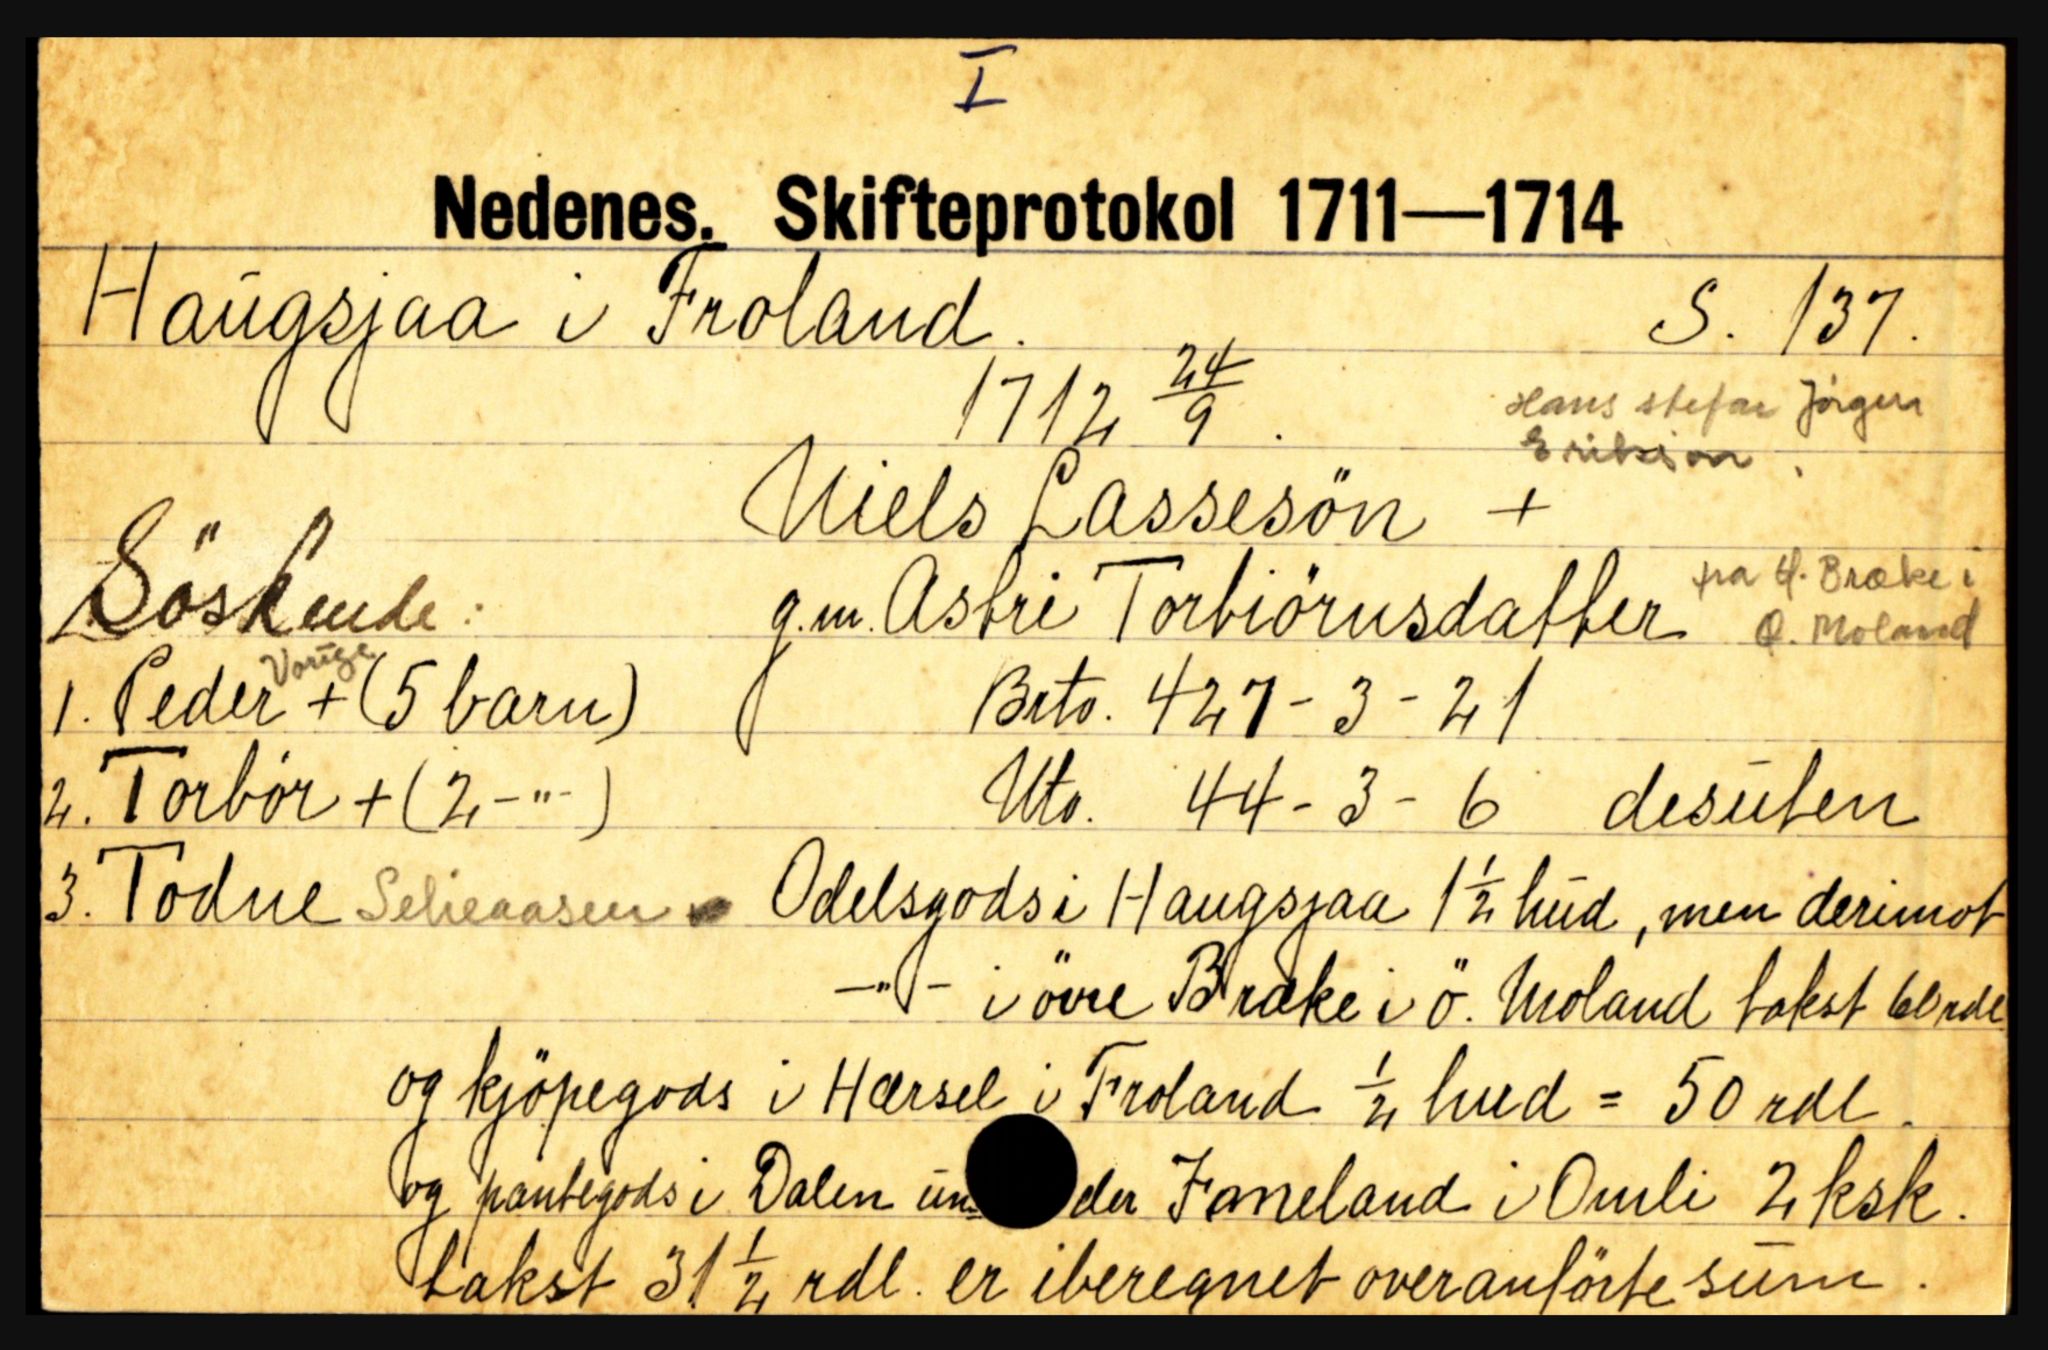 I
Nedenes. Skifteprotokol 1711—1714
Haugsjaa i Froland. S. 137.
1712 24/9.
Hans stefar Jörgen
Erikson.
Niels Lassesön +
Söskende:
g.m. Astri Torbiörnsdatter fra Ø. Bræke i
Ø. Moland
Vorige
1. Peder + (5 barn) Brto. 427-3-21
2. Torbör + (2 -"-) Uto. 44-3-6 desuten
3. Todne Odelsgods i Haugsjaa 1 1/2 hud, men derimot
-"- i övre Bræke i ö. Moland takst 60 rdl
og kjöpegods i Hærsel i Froland 1/2 hud = 50 rdl.
og pantegods i Dalen under Faneland i Omli 2 ksk.
takst 31 1/2 rdl. er iberegnet overanförte sum.